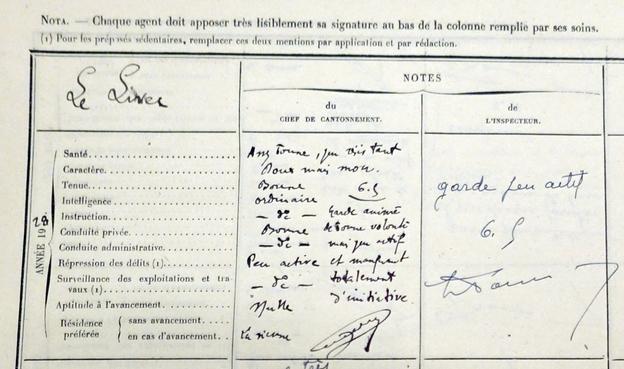 NOTA. — Chaque agent doit apposer très lisiblement sa signature au bas de la colonne remplie par ses soins.
(1) Pour les préposés sédentaires, remplacer ces deux mentions par application et par rédaction.
NOTES
Le
du
CHEF DE CANTONNEMENT.
de
L'INSPECTEUR.
ANNÉE 1928
Santé
Caractère. Doux mais mou.
Tenue. Bonne 6.5
garde peu actif
Intelligence ordinaire
Instruction. — d° — Garde animé
6.5
Conduite privée. Bonne de bonne volonté
Conduite administrative. — d° — mais peu actif
Répression des délits (1). Peu active et manquant
Surveillance des exploitations et tra-
vaux (1). — d° — totalement
Aptitude à l'avancement. Nulle d'initiative.
Résidence préférée
sans avancement.
en cas d'avancement. La sienne